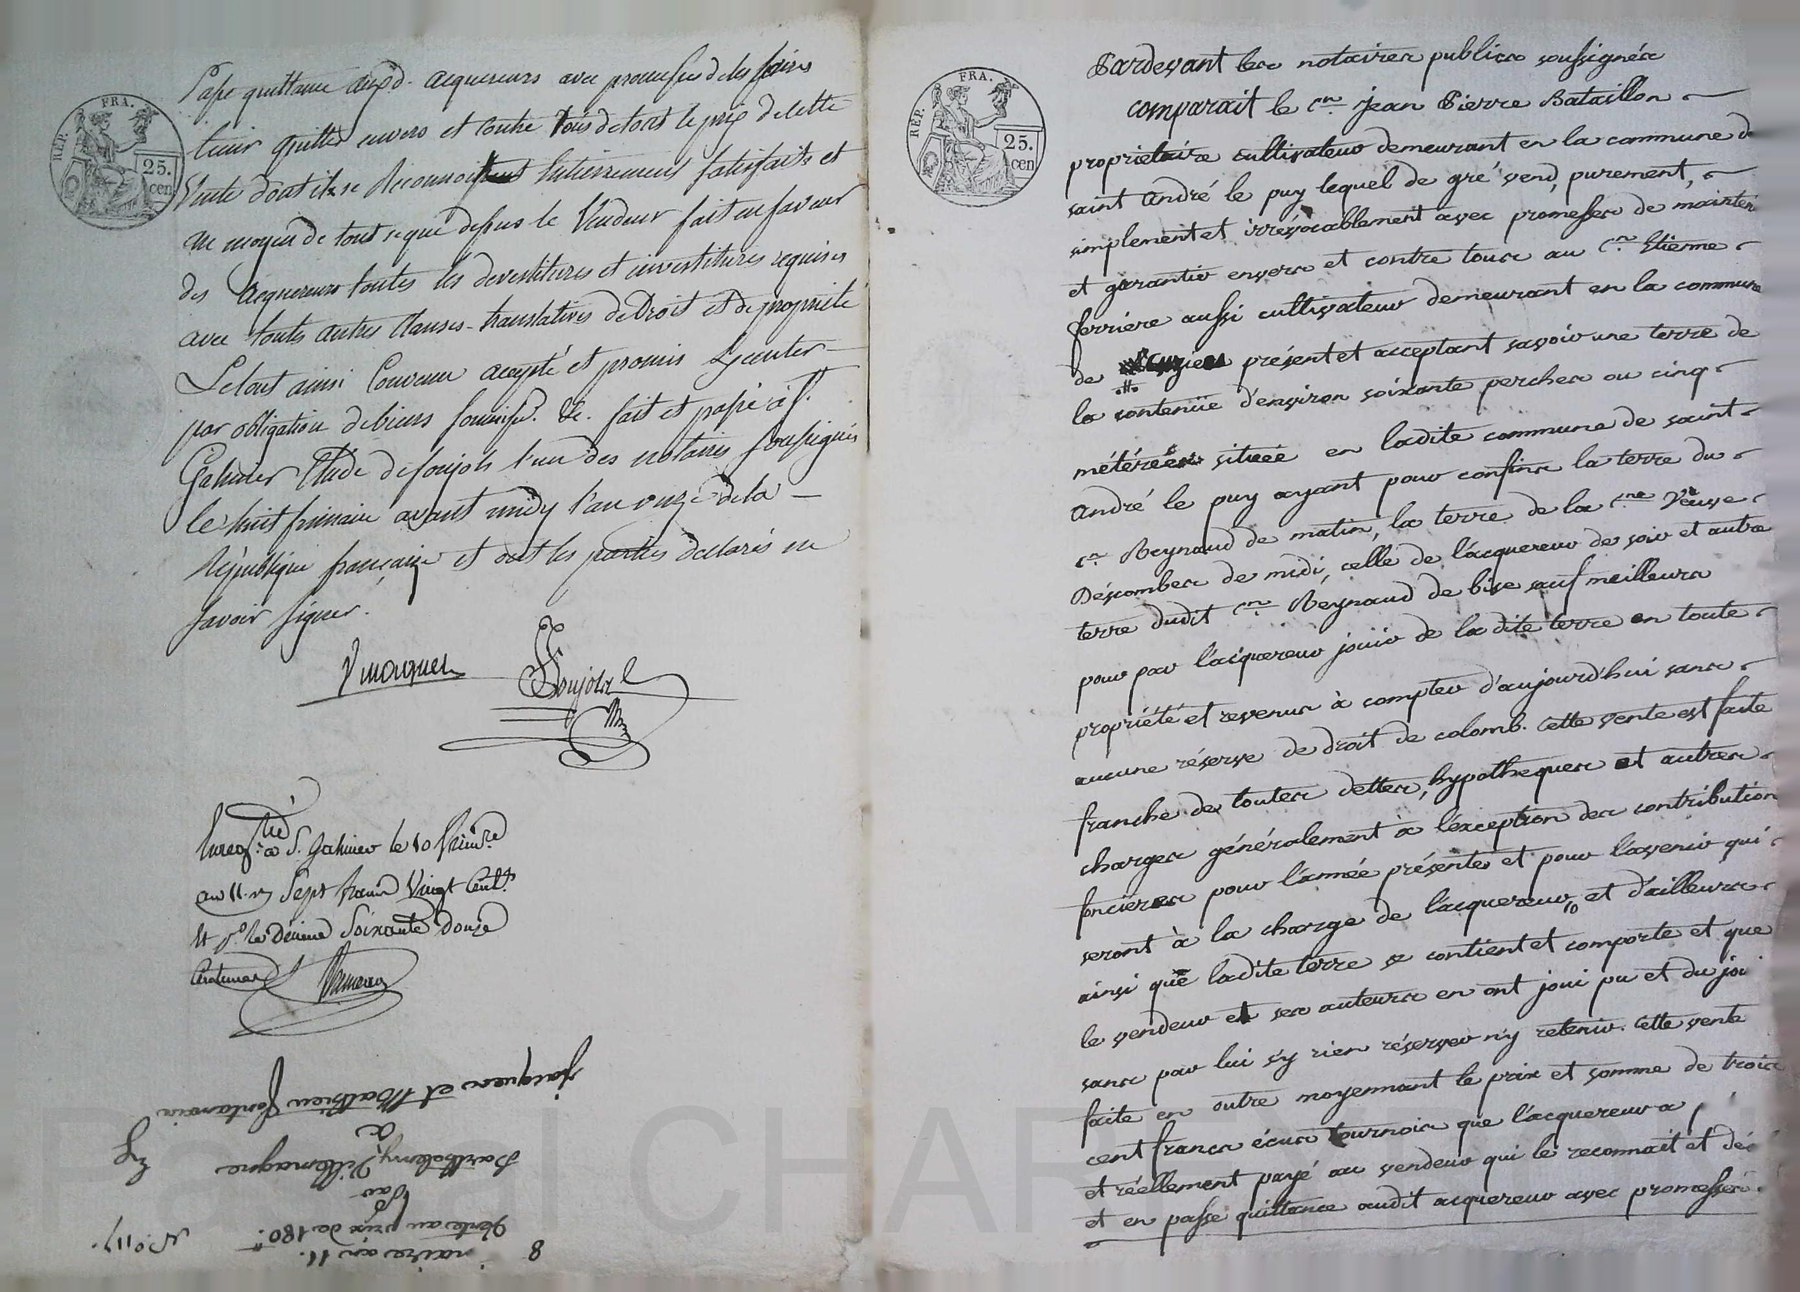 Passe quittance auxd. acquereurs avec promesse de les faire
tenir quittes envers et contre tous de tout le prix de cette
Vente dont il se Reconnoit Entierement satisfaits et
au moyen de tout ce que dessus le Vendeur fait en faveur
des Acquereurs toutes les devestitures et investitures requises
avec toutes autres Clauses translatives de Droit et de propriété
Le tout ainsi Convenu accepté et promis Executer
par obligation de biens soumiss.ⁿ &c. fait et passé à S.ᵗ
Galmier Etude de soujols l'un des notaires soussignés
le huit frimaire avant midy l'an onze de la
République française et ont les parties declarés ne
savoir signer.
Soujols
Enreg.ᵗʳé à S. Galmier le 10 frim.ʳᵉ
an 11. r. Sept francs Vingt Cent.ˢ
Et p.ʳ le Décime Soixante Douze
Centimes
Jacques et Mathieu fontanain
a
Barthelemy Villemagne
par
Vente au prix de 180.ᶠᶠ
8
naire an 11.
N.º 117.
RÉP. FRA.
25.
cen
RÉP. FRA.
25.
cen
Pardevant les notaires publics soussignés
comparait le c.ᵉⁿ Jean Pierre Bataillon
proprietaire cultivateur demeurant en la commune de
saint André le puy lequel de gré vend, purement,
simplement et irrévocablement avec promesses de mainten
et garantir envers et contre tous au c.ᵉⁿ Etienne
ferriere aussi cultivateur demeurant en la commune
de présent et acceptant savoir une terre de
la contenüe d'environ soixante perches ou cinq
métérées située en ladite commune de saint
André le puy ayant pour confins la terre du
c.ᵉⁿ Reynaud de matin, la terre de la c.ⁿᵉ Veuve
Déscombes de midi, celle de l'acquereur de soir et autre
terre dudit c.ᵉⁿ Reynaud de bise sauf meilleurs
pour par l'acquereur jouir de la dite terre en toute
propriété et revenus à compter d'aujourd'hui sans
aucune réserve de droit de colomb. Cette vente est faite
franche de toutes dettes, hypotheques et autres
charges généralement à l'éxception des contribution
foncières pour l'année présente et pour l'avenir qui
seront à la charge de l'acquereur, et d'ailleurs
ainsi que ladite terre se contient et comporte et que
le vendeur et ses auteurs en ont joui pu et du joui
sans par lui s'y rien réserver n'y retenir. Cette vente
faite en outre moyennant le prix et somme de trois
cent francs écus tournois que l'acquereur a
et réellement payé au vendeur qui le reconnait et déc
et en passe quittance audit acquereur avec promesse
Pascal CHAREYRON